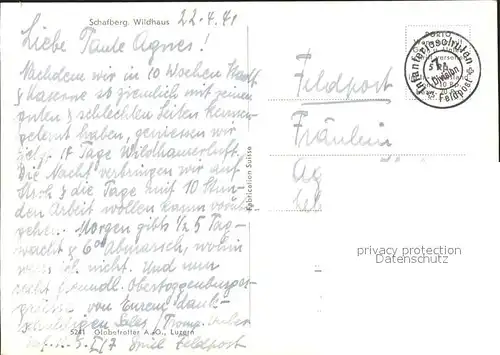 Schafberg. Wildhaus 22.4.41
Liebe Tante Agnes!
Nachdem wir in 10 Wochen Stadt
& Kaserne so ziemlich mit seinen
guten & schlechten Seiten kennen-
gelernt haben, geniessen wir
jetzt 17 Tage Wildhauserluft.
Die Nacht verbringen wir auf
Stroh & die Tage mit 10 Stun-
den Arbeit wollen kaum vorüber-
gehen. Morgen gibts 1/2 5 Tag-
wacht & 6° Abmarsch, wohin
weiss ich nicht. Und nun
recht freundl. Obertoggenburger-
grüsse von Eurem dank-
schuldigen
Emil Feldpost
5241 Globetrotter A.G., Luzern
Fabrication Suisse
Feldpost
Fräulein
Ag
bel
Infanterieschulen
7.
Division
Feldpost
privacy protection
Datenschutz